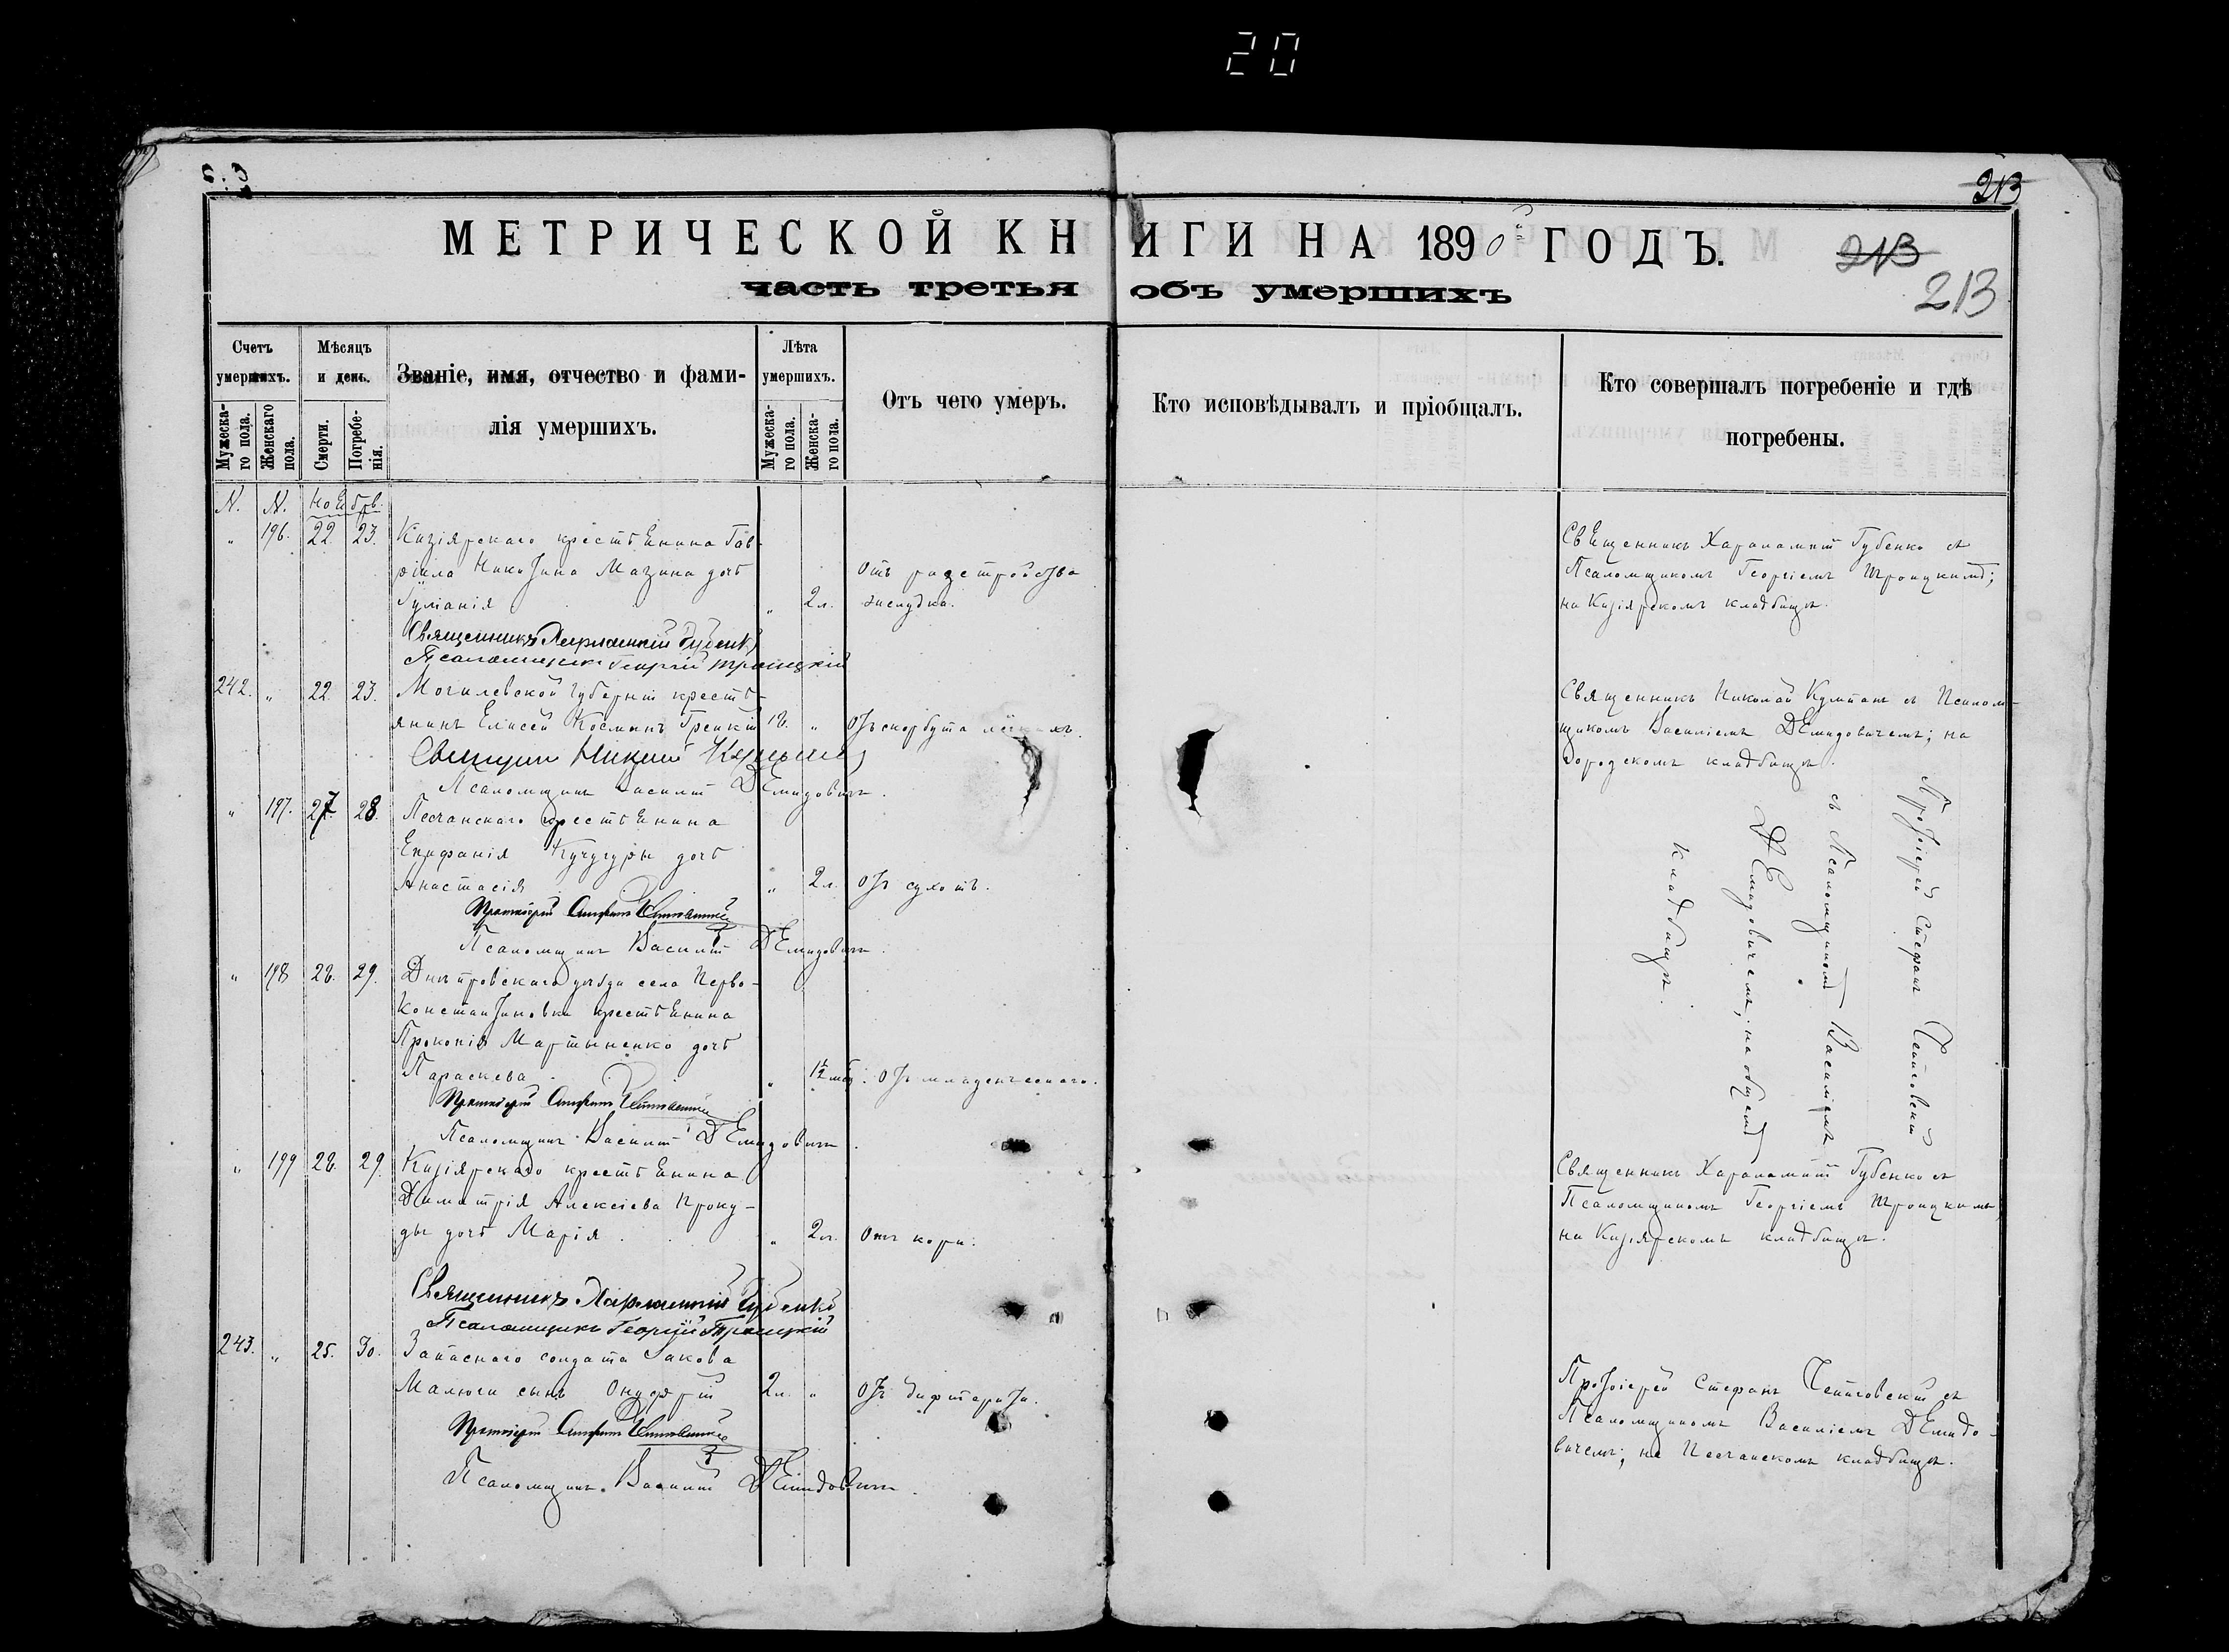 20
213
МЕТРИЧЕСКОЙ КНИГИ НА 1890й ГОДЪ.
213
213
часть третья объ умершихъ
Счетъ умершихъ.
Мужеска-го пола.
Женскаго пола.
Мѣсяцъ и день.
Смерти.
Погребе-нія.
Званіе, имя, отчество и фами-
лія умершихъ.
Лѣта умершихъ.
Мужеска-го пола.
Женска-го пола.
Отъ чего умеръ.
Кто исповѣдывалъ и пріобщалъ.
Кто совершалъ погребеніе и гдѣ
погребены.
N. N. Ноябрь.
" 196. 22 23. Кизіярскаго крестьянина Гав-
ріила Никитина Мазина дочь
Іуліанія " 2 л.
Отъ разстройства
желудка.
Священникъ Харалампій Губенко съ
Псаломщикомъ Георгіемъ Троицкимъ;
на Кизіярскомъ кладбищѣ.
Священникъ Харалампій Губенко
Псаломщикъ Георгій Троицкій
242. " 22 23. Могилевской губерніи кресть-
янинъ Елисей Косминъ 18. " Отъ скорбута
Священникъ Николай съ Псалом-
щикомъ Василіемъ Демидовичемъ; на
городскомъ кладбищѣ.
Священникъ Николай
Псаломщикъ Василій Демидовичъ.
" 197. 27. 28. Песчанскаго крестьянина
Епифанія Кучугуры дочь
Анастасія " 2 л. Отъ сухотъ.
Протоіерей Стефанъ
Псаломщикъ Василій Демидовичъ.
Протоіерей Стефанъ
съ Псаломщикомъ Василіемъ
Демидовичемъ; на общемъ
кладбищѣ.
" 198 28. 29. Днѣпровскаго уѣзда села Перво-
Константиновки крестьянина
Прокопія Мартыненко дочь
Параскева " 1½ мѣс. Отъ младенческаго.
Протоіерей Стефанъ
Псаломщикъ Василій Демидовичъ.
" 199 28. 29. Кизіярскаго крестьянина
Димитрія Алексіева Проку-
ды дочь Марія. " 2 л. Отъ кори.
Священникъ Харалампій Губенко съ
Псаломщикомъ Георгіемъ Троицкимъ,
на Кизіярскомъ кладбищѣ.
Священникъ Харалампій Губенко
Псаломщикъ Георгій Троицкій
243. " 25. 30. Запаснаго солдата Іакова
Малюги сынъ Онуфрій 2 л. " Отъ дифтерита.
Протоіерей Стефанъ съ
Псаломщикомъ Василіемъ Демидо-
вичемъ; на Песчанскомъ кладбищѣ.
Протоіерей Стефанъ
Псаломщикъ Василій Демидовичъ.